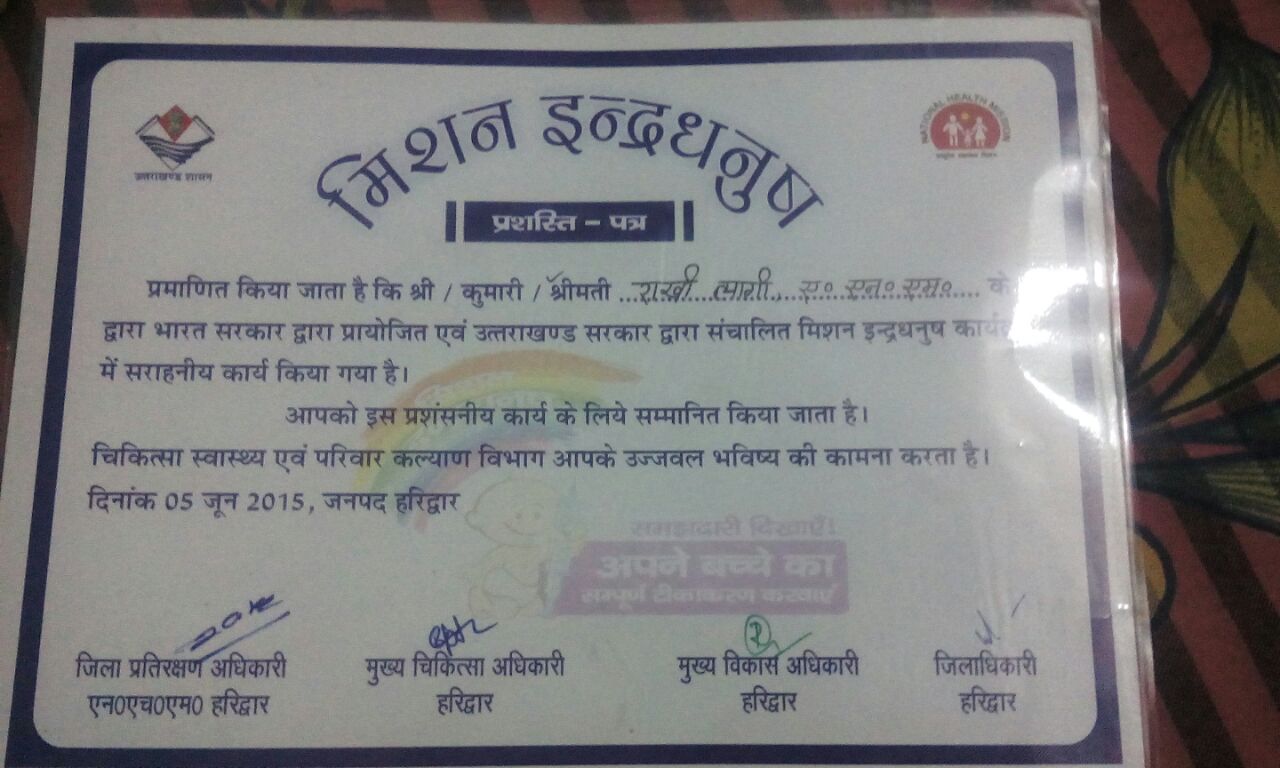 मिशन इन्द्रधनुष
उत्तराखण्ड शासन
NATIONAL HEALTH MISSION
प्रशस्ति - पत्र
प्रमाणित किया जाता है कि श्री / कुमारी / श्रीमती ...राखी त्यागी, ए० एन० एम०.... के
द्वारा भारत सरकार द्वारा प्रायोजित एवं उत्तराखण्ड सरकार द्वारा संचालित मिशन इन्द्रधनुष
में सराहनीय कार्य किया गया है।
आपको इस प्रशंसनीय कार्य के लिये सम्मानित किया जाता है।
चिकित्सा स्वास्थ्य एवं परिवार कल्याण विभाग आपके उज्जवल भविष्य की कामना करता है।
दिनांक 05 जून 2015, जनपद हरिद्वार
समझदारी दिखाएँ!
अपने बच्चे का
सम्पूर्ण टीकाकरण करवाएं
जिला प्रतिरक्षण अधिकारी
एन0एच0एम0 हरिद्वार
मुख्य चिकित्सा अधिकारी
हरिद्वार
मुख्य विकास अधिकारी
हरिद्वार
जिलाधिकारी
हरिद्वार